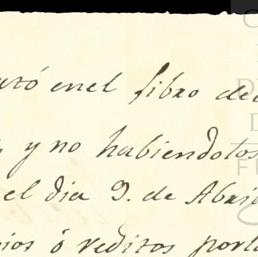 en el libro de
y no habiendolos
el dia 9. de Abri
ó reditos por